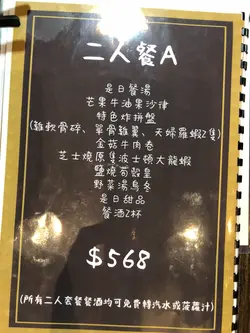 二人餐A
是日餐湯
芒果牛油果沙律
特色炸拼盤
(雞軟骨碎、單骨雞翼、天婦羅蝦2隻)
金菇牛肉卷
芝士燒原隻波士頓大龍蝦
鹽燒荀殼皇
野菜湯烏冬
是日甜品
餐酒2杯
$568
(所有二人套餐餐酒均可免費轉汽水或菠蘿汁)